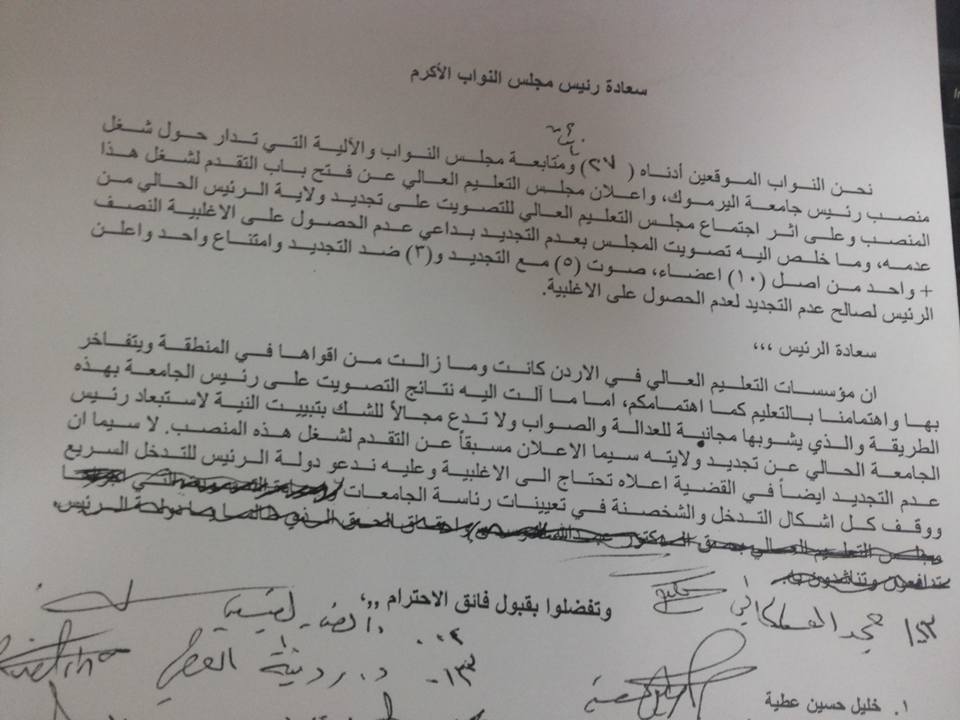 سعادة رئيس مجلس النواب الأكرم
نحن النواب الموقعين أدناه ( ٢٧ ) ومتابعة مجلس النواب والألية التي تدار حول شغل
منصب رئيس جامعة اليرموك، واعلان مجلس التعليم العالي عن فتح باب التقدم لشغل هذا
المنصب وعلى اثر اجتماع مجلس التعليم العالي للتصويت على تجديد ولاية الرئيس الحالي من
عدمه، وما خلص اليه تصويت المجلس بعدم التجديد بداعي عدم الحصول على الاغلبية النصف
+ واحد من اصل (١٠) اعضاء، صوت (٥) مع التجديد و(٣) ضد التجديد وامتناع واحد واعلن
الرئيس لصالح عدم التجديد لعدم الحصول على الاغلبية.
سعادة الرئيس ،،،
ان مؤسسات التعليم العالي في الاردن كانت وما زالت من اقواها في المنطقة ويتفاخر
بها واهتمامنا بالتعليم كما اهتمامكم، اما ما آلت اليه نتائج التصويت على رئيس الجامعة بهذه
الطريقة والذي يشوبها مجانبة للعدالة والصواب ولا تدع مجالاً للشك بتبييت النية لاستبعاد رئيس
الجامعة الحالي عن تجديد ولايته سيما الاعلان مسبقاً عن التقدم لشغل هذه المنصب. لا سيما ان
عدم التجديد ايضاً في القضية اعلاه تحتاج الى الاغلبية وعليه ندعو دولة الرئيس للتدخل السريع
ووقف كل اشكال التدخل والشخصنة في تعيينات رئاسة الجامعات
مجلس التعليم العالي بحق الدكتور عبدالله
وتفضلوا بقبول فائق الاحترام ،،،
١. خليل حسين عطية